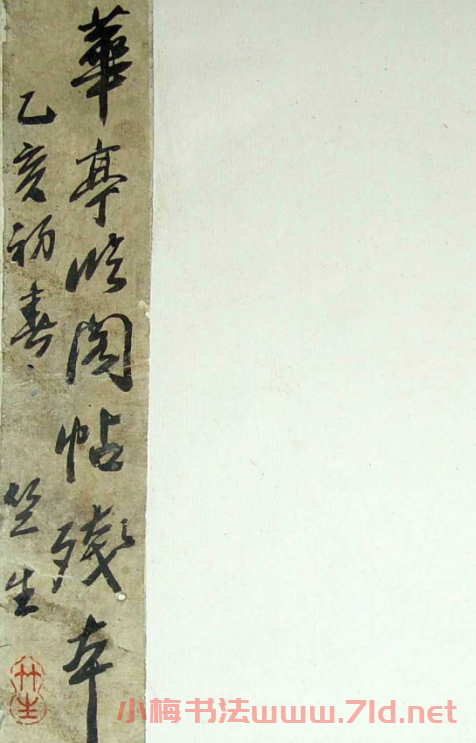 華亭临阁帖殘本
乙亥初春
竺生
竹生
小梅书法www.7ld.net